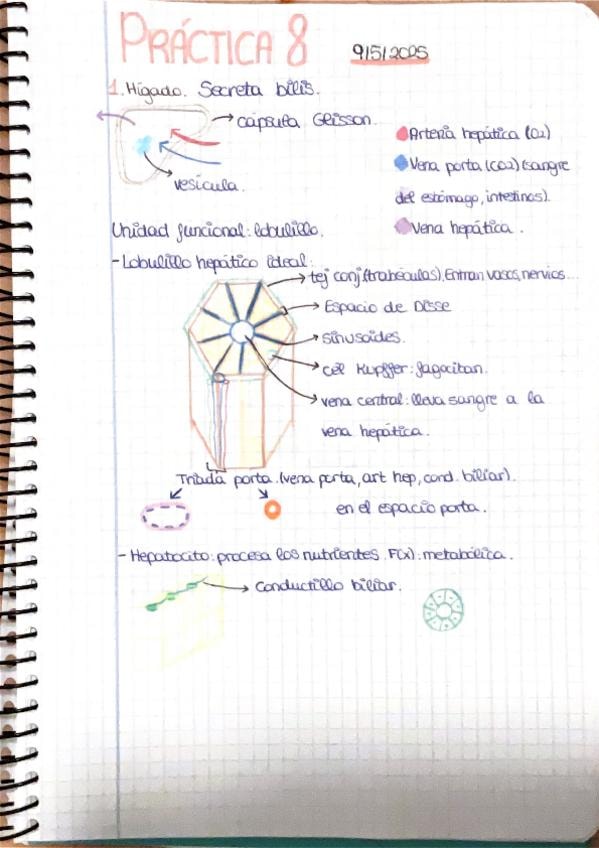 PRÁCTICA 8
9/5/2025
1. Hígado. Secreta bilis.
cápsula Glisson.
vesícula.
Arteria hepática (O2)
Vena porta (CO2) (sangre
del estómago, intestinos).
Vena hepática.
Unidad funcional: lobulillo.
- Lobulillo hepático ideal:
tej conj (trabéculas). Entran vasos, nervios...
Espacio de Disse
sinusoides.
cél Kupffer: fagocitan.
vena central: lleva sangre a la
vena hepática.
Triada porta. (vena porta, art hep, cond. biliar).
en el espacio porta.
- Hepatocito: procesa los nutrientes. F(x): metabólica.
Conductillo biliar.